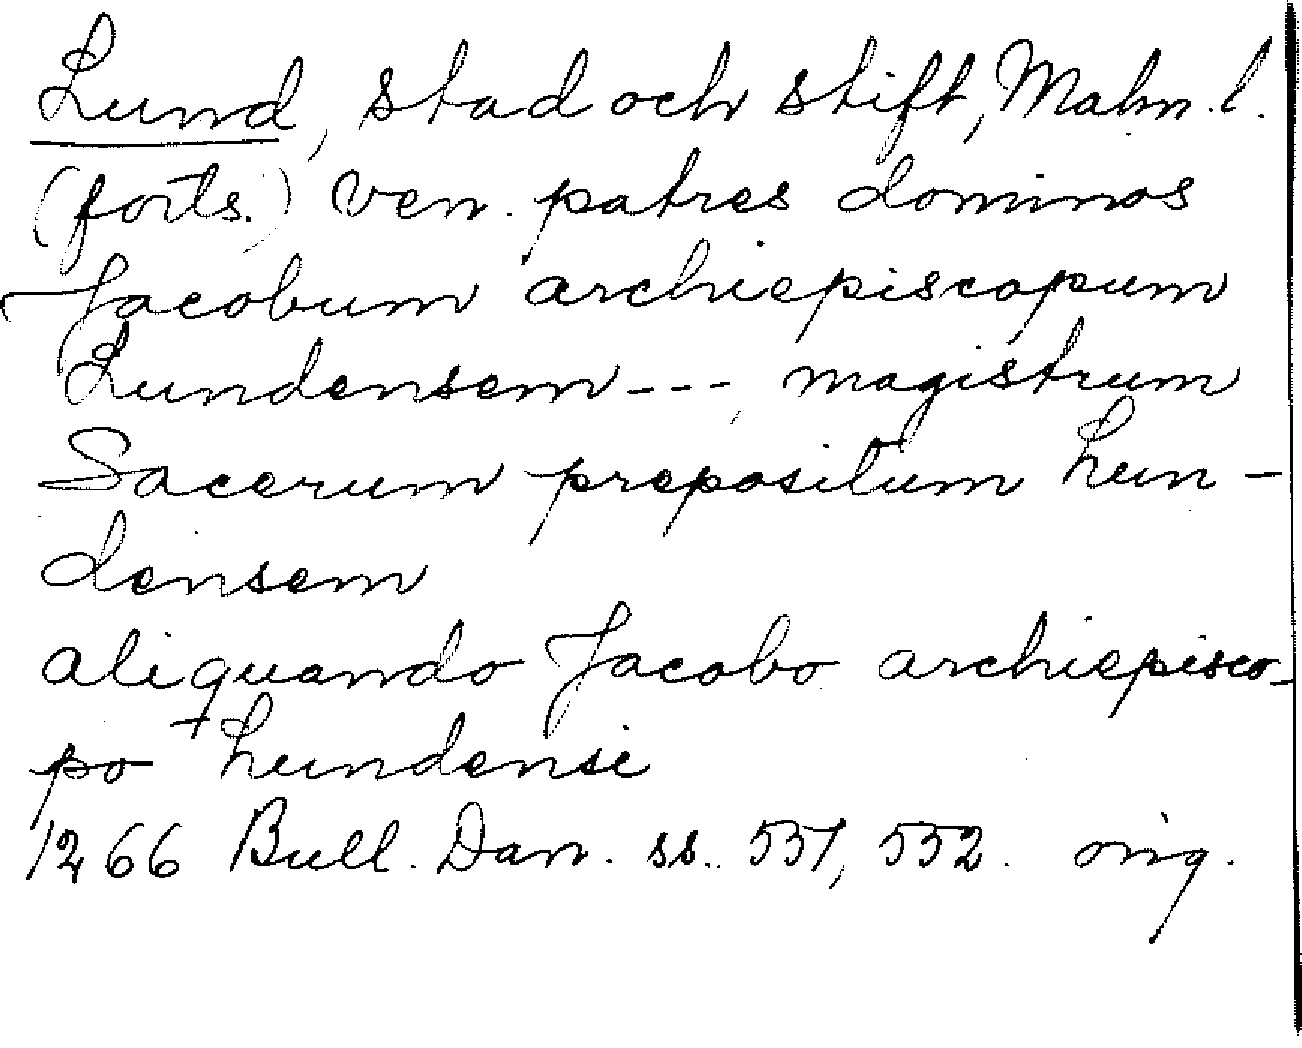 Lund, stad och stift, Malm. l.
(forts.) ven. patres dominos
Jacobum archiepiscopum
Lundensem---, magistrum
Sacerum prepositum Lun-
densem
aliquando Jacobo archiepisco-
po Lundensi
1266 Bull. Dan. ss. 551, 552. orig.